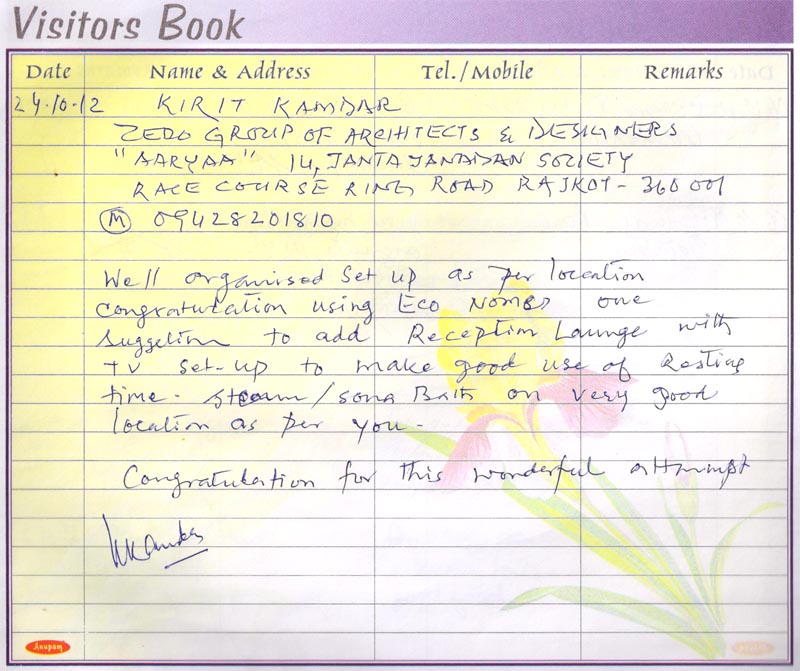 Visitors Book
Date Name & Address Tel./Mobile Remarks
24.10.12 KIRIT KAMDAR
ZERO GROUP OF ARCHITECTS & DESIGNERS
"AARYAA" 14, JANTA JANARDAN SOCIETY
RACE COURSE RING ROAD RAJKOT - 360 001
(M) 09428201810
Well organised set up as per location
congratulation using Eco Nombs one
suggetion to add Reception Lounge with
TV set-up to make good use of Resting
time. Steam/sona Bath on very good
location as per you -
Congratulation for this wonderful attempt
Anupam